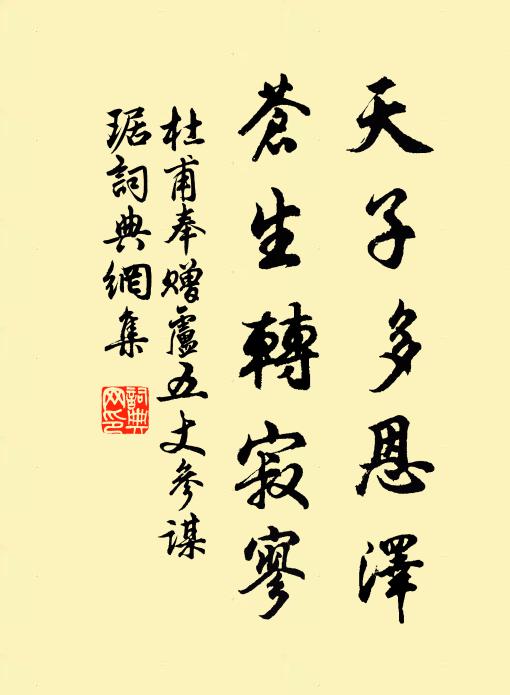 天子多恩澤
蒼生轉寂寥
杜甫奉赠盧五丈參謀
琚詞典網集
詞典
网印